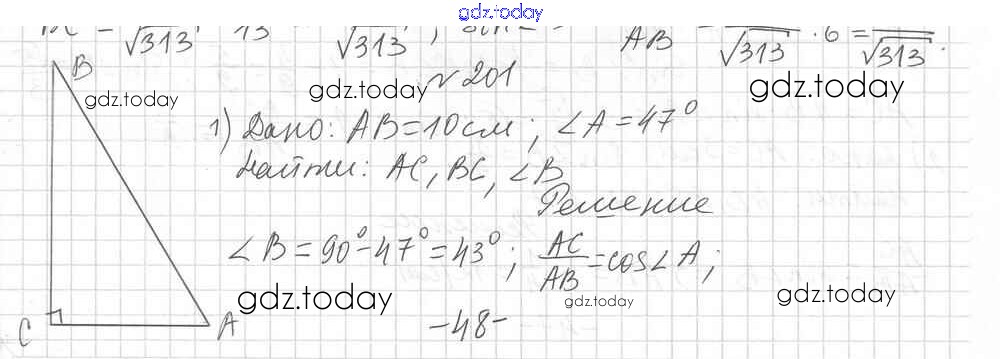 gdz.today
√313 13 √313 ; AB = √313 · 6 = √313 .
№ 201
B
gdz.today gdz.today gdz.today
1) Дано: AB = 10 см; ∠A = 47°
Найти: AC, BC, ∠B
Решение
∠B = 90° - 47° = 43°; AC/AB = cos∠A;
gdz.today gdz.today gdz.today
C A
-48-